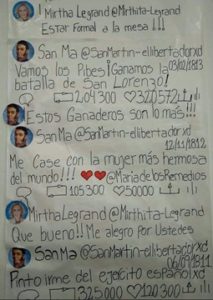 Mirtha Legrand @Mirthita-Legrand
Estar Formal a la mesa !!!
San Ma @SanMartin-ellibertadorxd
Vamos los Pibes¡Ganamos la 03/02/1813
batalla de San Lorenzo!
204300 320572
Estos Ganaderos son lo más!!!
San Ma @SanMartin-ellibertadorxd
12/11/1812
Me Case con la mujer más hermosa
del mundo!!! ❤❤@MariadelosRemedios
105300 50000
Mirtha Legrand @Mirthita-Legrand
Que bueno!! Me alegro por Ustedes
San Ma @SanMartin-ellibertadorxd
06/09/1811
Pinto irme del ejército españolxd
325000 120300